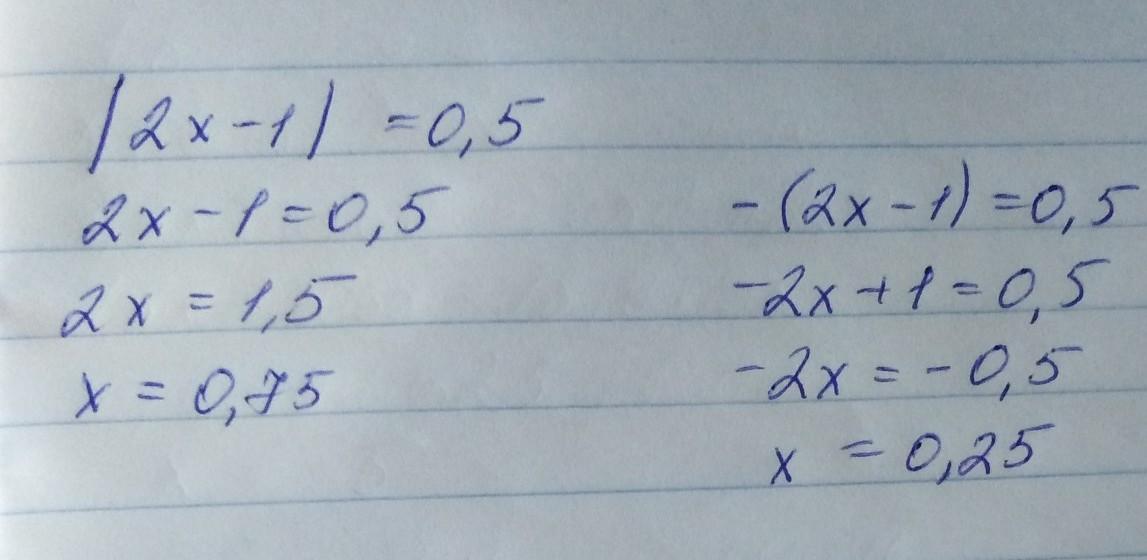 |2x-1| =0,5
2x-1=0,5
2x=1,5
x=0,75
-(2x-1)=0,5
-2x+1=0,5
-2x=-0,5
x=0,25